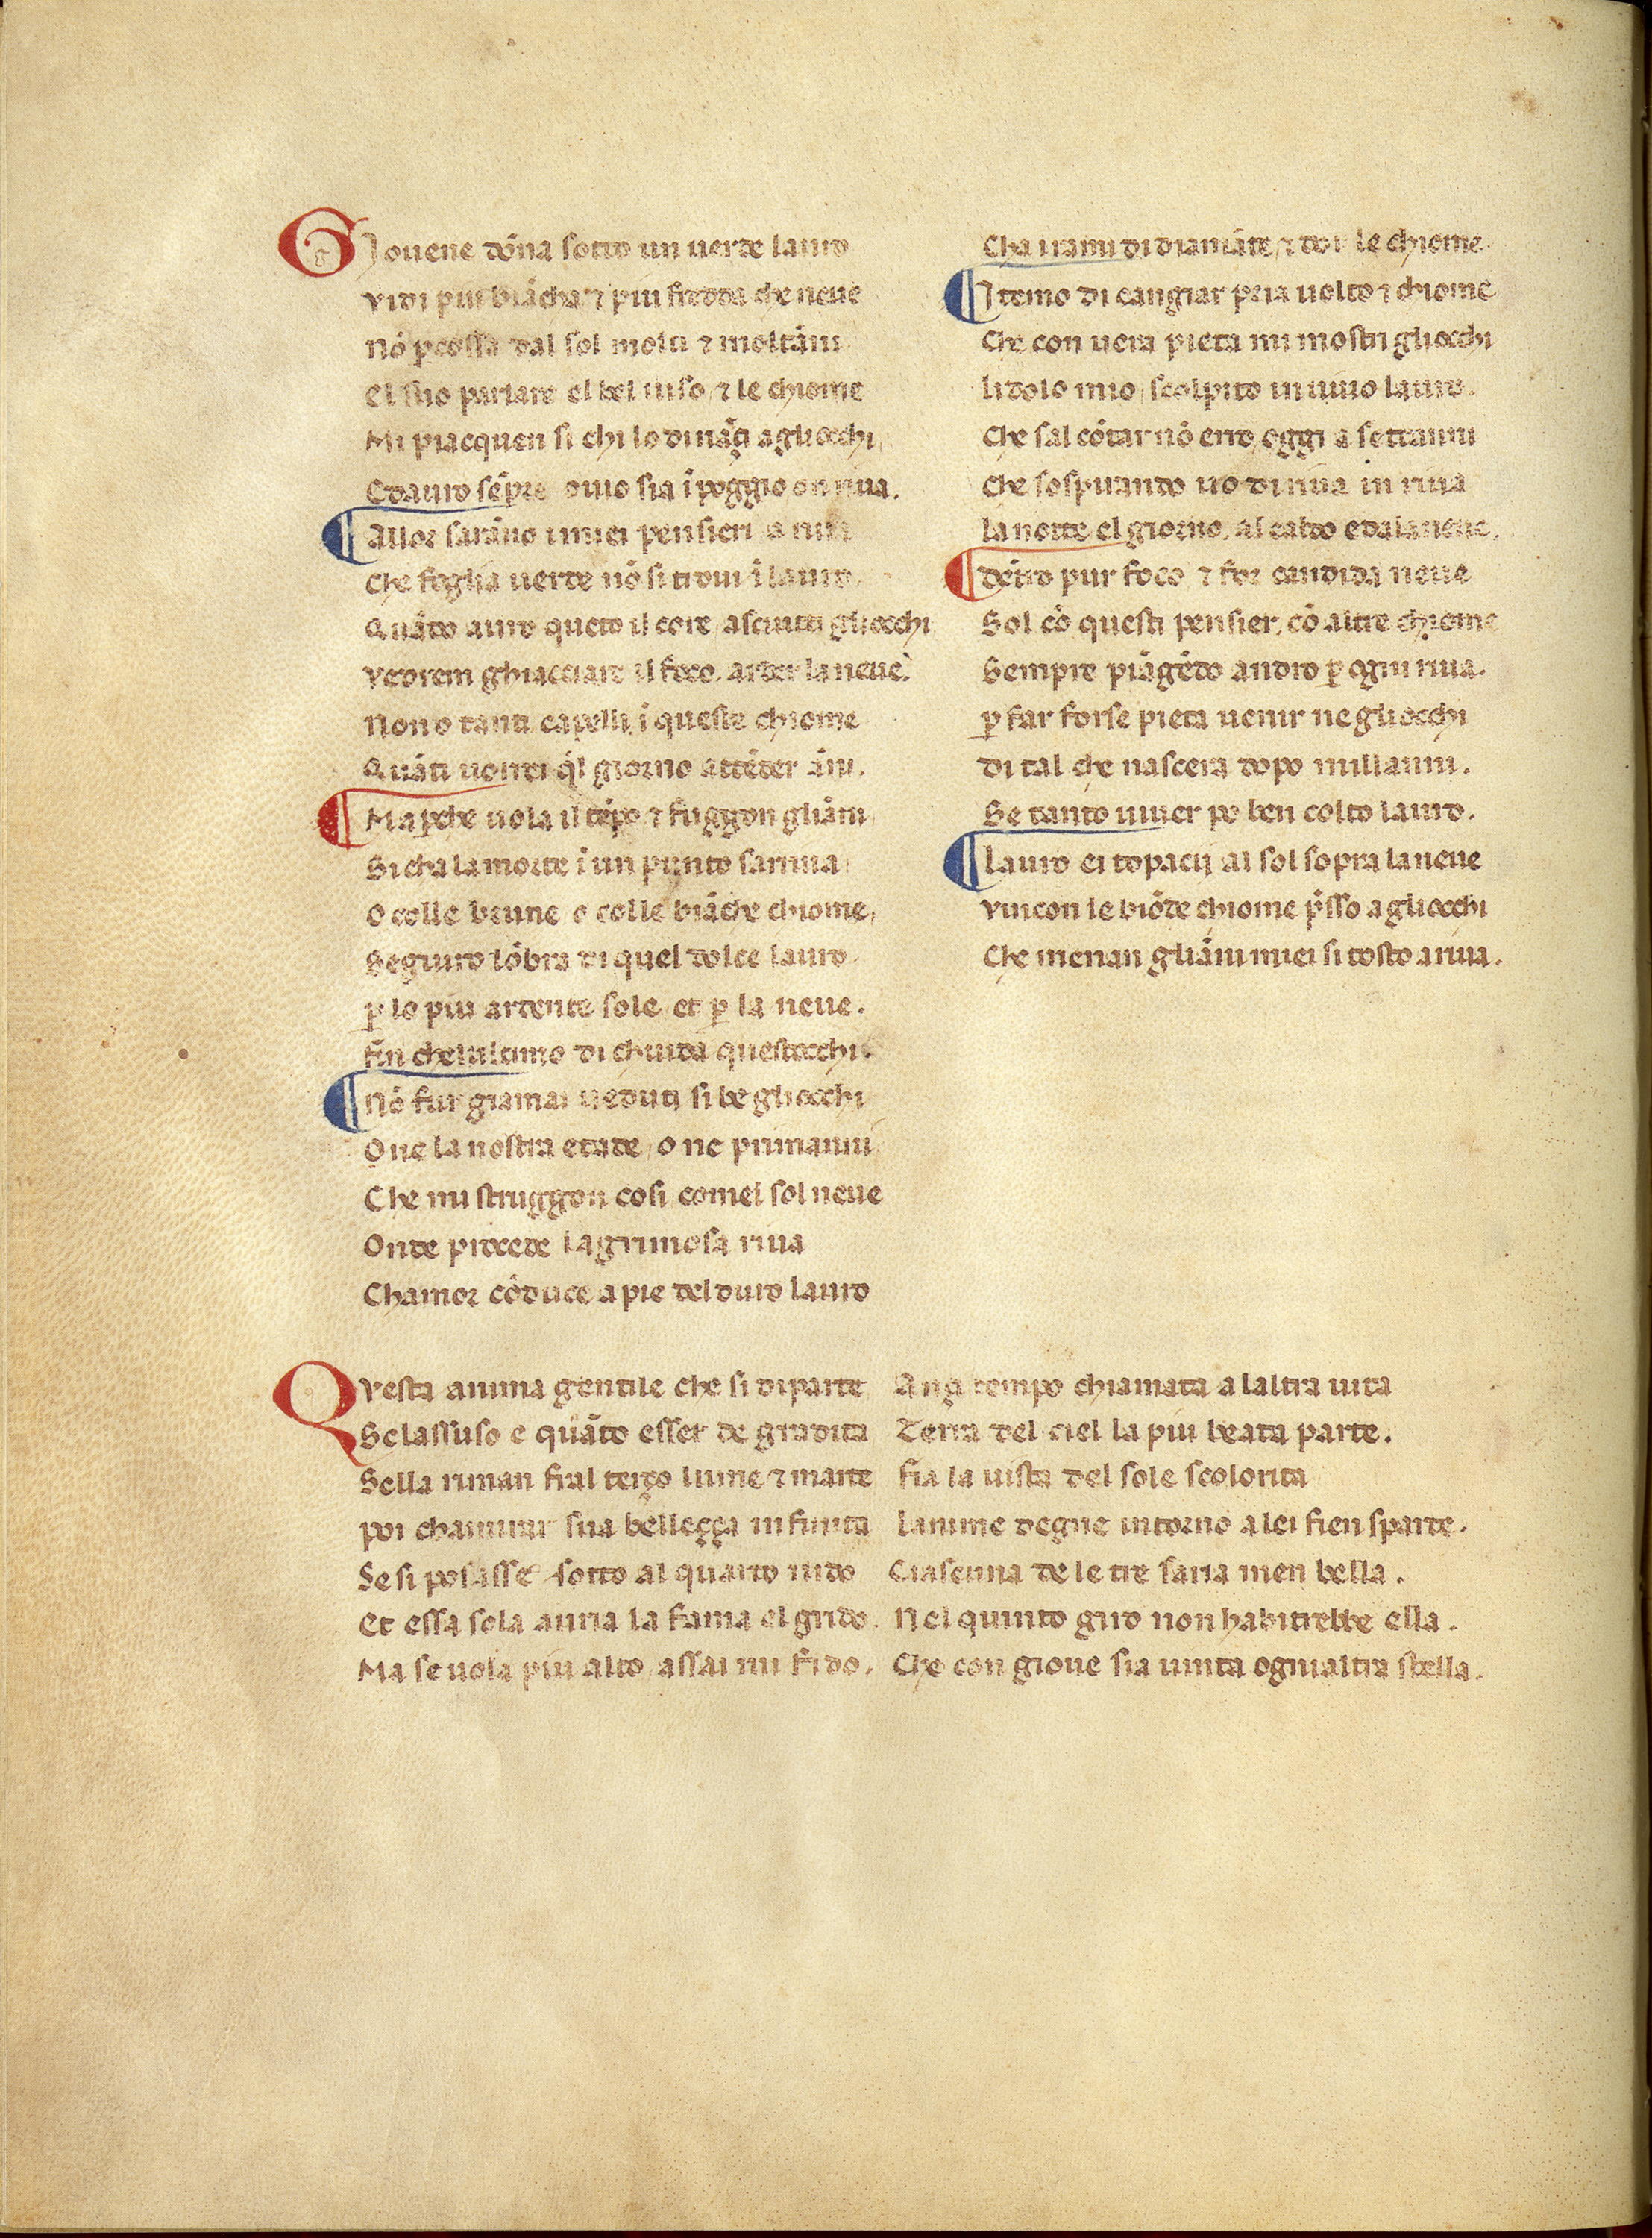 GJouene dōna sotto un uerde lauro
vidi piu biācha ⁊ piu fredda che neue
nō pcossa dal sol molti ⁊ moltāni
el suo parlare el bel uiso, ⁊ le chiome
Mi piacquen si chi lo dināçi agliocchi,
Edauro sēpre ouio sia ī poggio on riua.
Allor sarāno imiei pensieri a riua
Che foglia uerde nō si troui ī lauro.
Quādo auro queto il core, asciutti gliocchi
vedrem ghiacciare il foco, arder la neue.
Non o tanti capelli, ī queste chiome
Quāti uorrei q̄l giorno attēder āni.
Ma pche uola il tēpo ⁊ fuggon gliāni
Sicha la morte ī un punto sarriua
O colle brune o colle biāche chiome,
Seguiro lōbra di quel dolce lauro.
ꝑ lo piu ardente sole, et ꝑ la neue.
fin chelultimo di chiuda questocchi.
Nō fur giamai ueduti si be gliocchi
O ne la nostra etade, o ne primanni
Che mi struggon cosi, comel sol neue
Onde procede lagrimosa riua
Chamor cōduce apie del duro lauro
Cha irami di diamāte, ⁊ dor le chiome.
Jtemo di cangiar pria uolto ⁊ chiome
Che con uera pieta mi mostri gliocchi
lidolo mio, scolpito in uiuo lauro.
Che sal cōtar nō erro, oggi a settanni
Che sospirando uo di riua in riua
la notte el giorno, al caldo edala neue.
dētro pur foco ⁊ for candida neue
Sol cō questi pensier, cō altre chiome
Sempre piāgēdo andro ꝑ ogni riua.
ꝑ far forse pieta uenir ne gliocchi
di tal che nascera dopo millanni.
Se tanto uiuer po ben colto lauro.
Lauro ei topacij al sol sopra la neue
vincon le biōde chiome p̄sso agliocchi
Che menan gliāni miei si tosto ariua.
Qvesta anima gentile che si diparte Ança tempo chiamata alaltra uita
Selassuso e quāto esser de gradita Terra del ciel la piu beata parte.
Sella riman fral terço lume ⁊ marte fia la uista del sole scolorita
poi chamirar sua belleçça infinita lanime degne intorno a lei fien sparte.
Se si posasse sotto al quarto nido Ciascuna de le tre saria men bella.
Et essa sola auria la fama el grido. Nel quinto giro non habitrebbe ella.
Ma se uola piu alto, assai mi fido, Che con gioue sia uinta ogni altra stella.